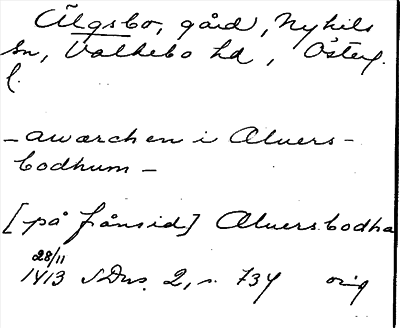 Älgsbo, gård, Nykils
sn, Valkebo hd, Österg.
l.
– awærchen i Aluers-
bodhum –
[på frånsid] Aluersbodha
28/11
1413 SDns. 2, s. 734 orig